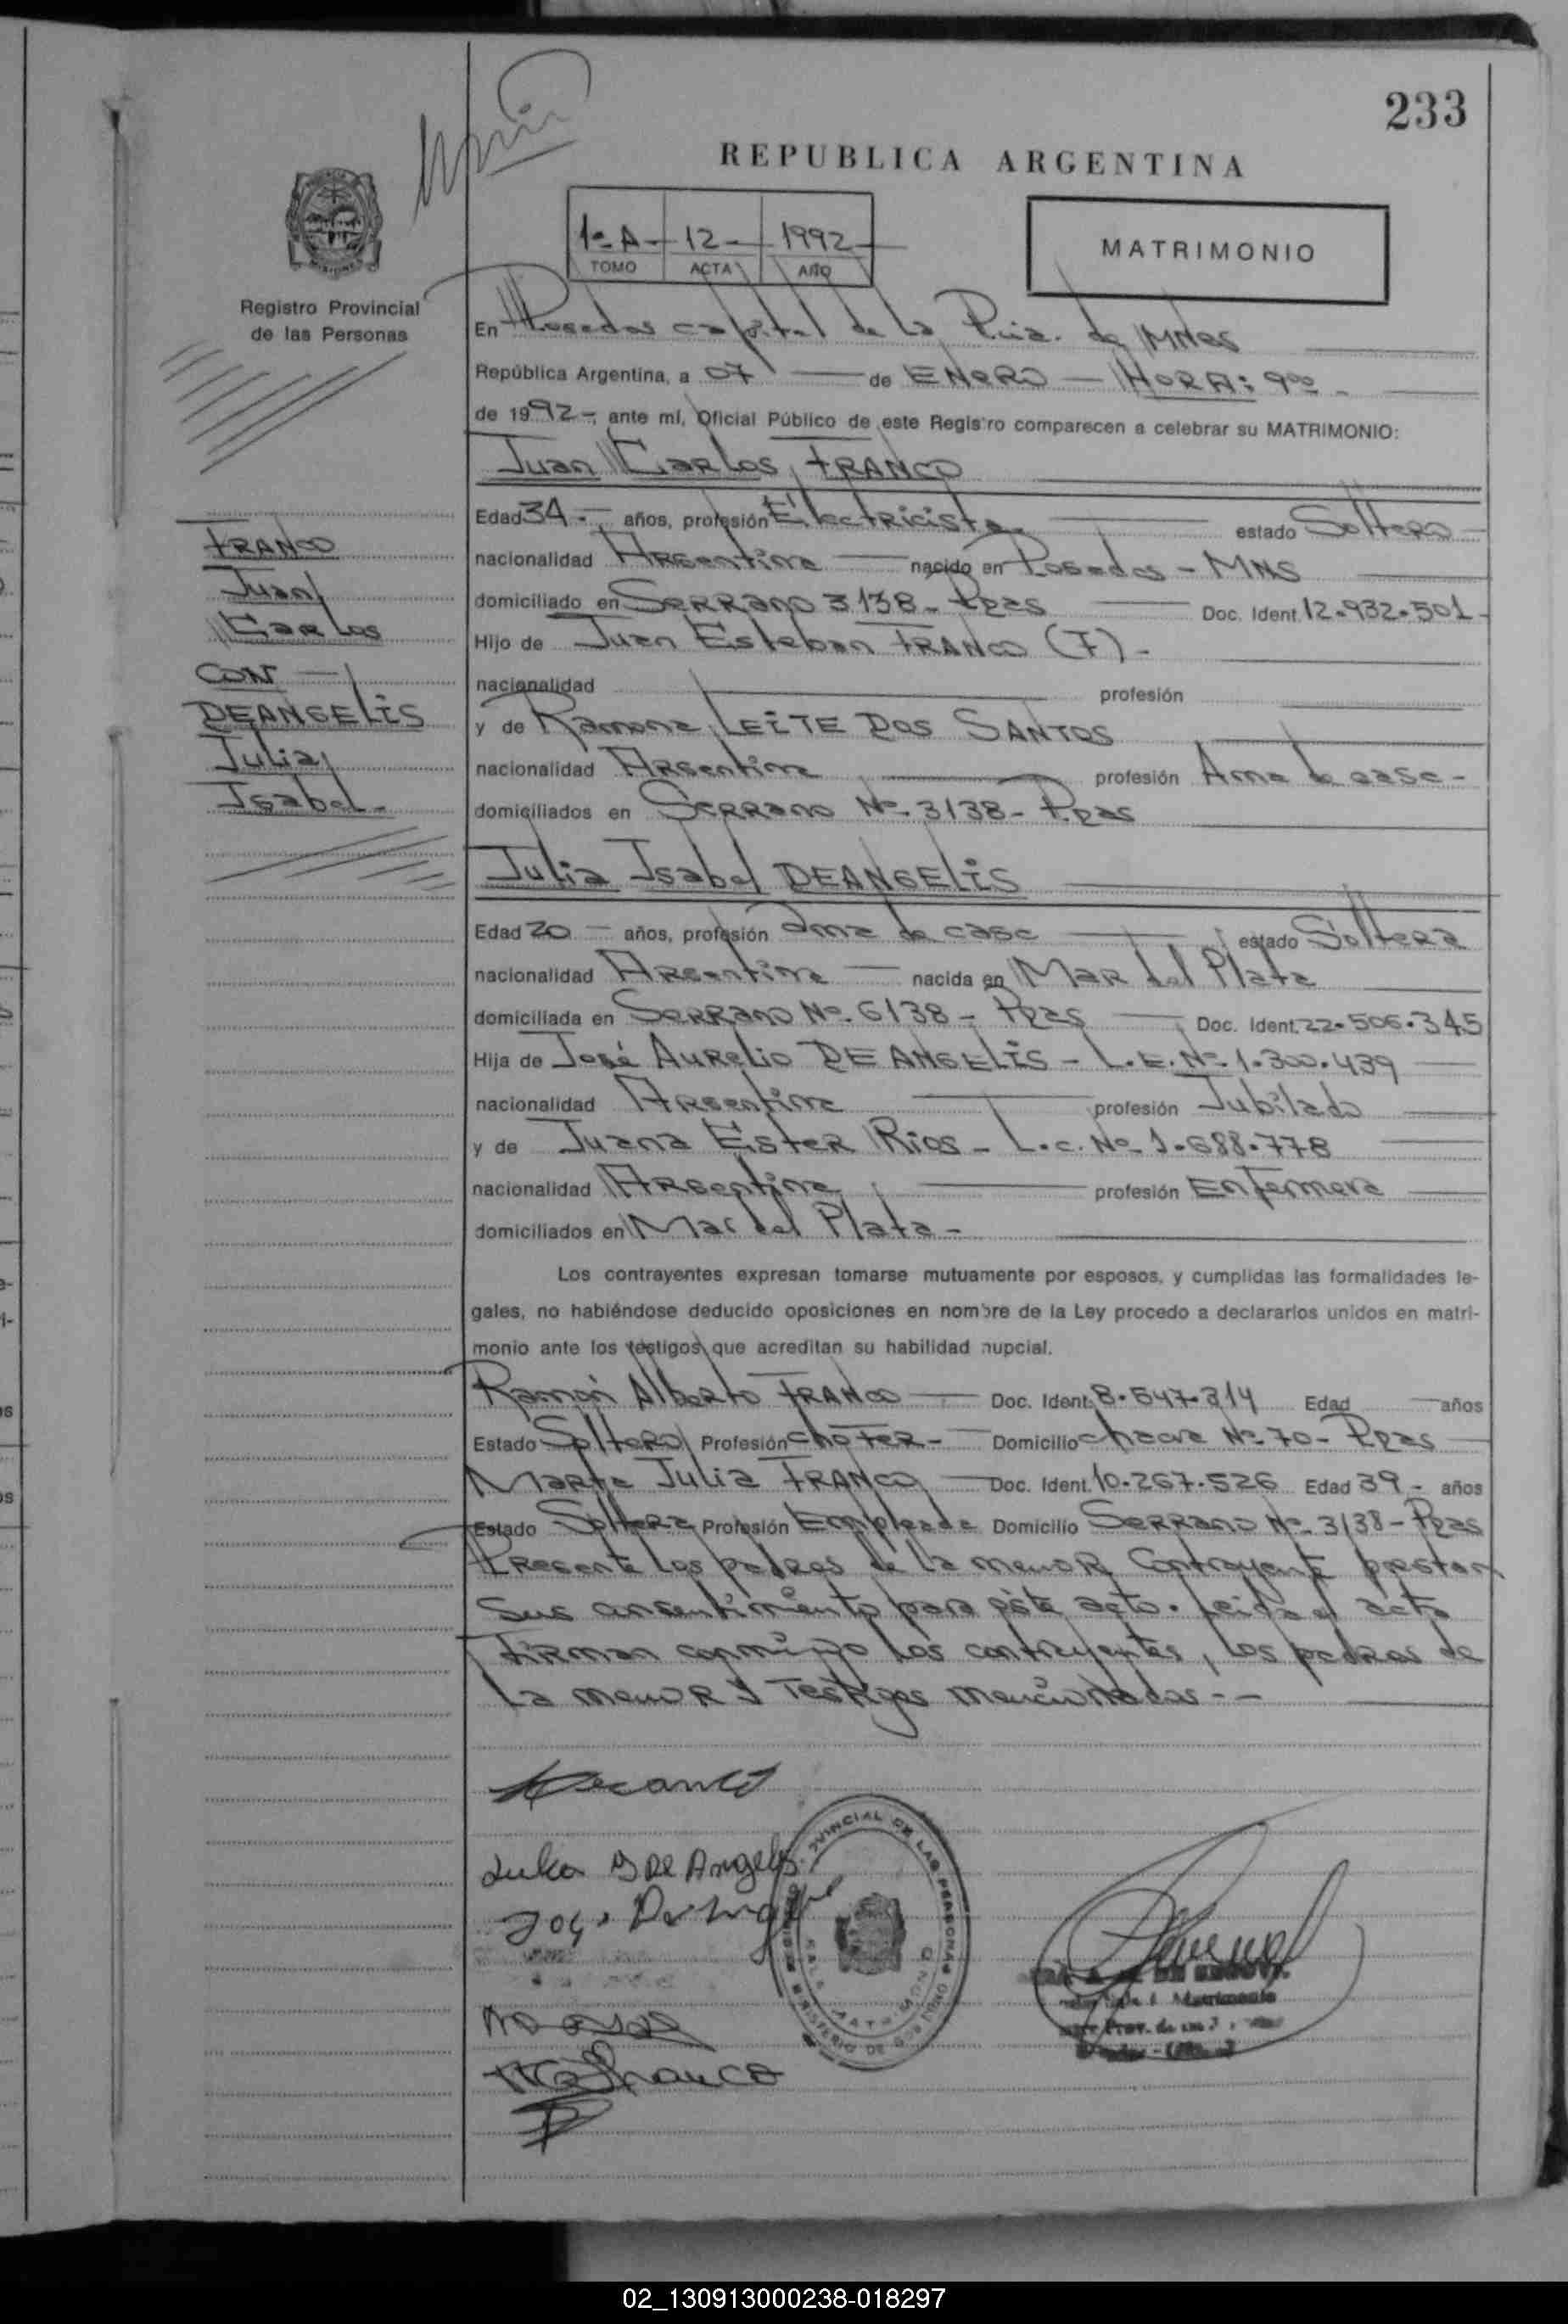 233
REPUBLICA ARGENTINA
1ª A- 12- 1992-
TOMO ACTA AÑO
MATRIMONIO
Registro Provincial
de las Personas
En Posadas capital de la Pcia. de MNES
República Argentina, a 07 — de ENERO — HORA: 9⁰⁰ -
de 1992-, ante mí, Oficial Público de este Registro comparecen a celebrar su MATRIMONIO:
Juan Carlos FRANCO
Edad 34.- años, profesión Electricista estado Soltero
nacionalidad Argentina — nacido en Posadas - MNS
domiciliado en Serrano 3138- Ppas Doc. Ident. 12.932.501-
Hijo de Juan Esteban FRANCO (F) -
nacionalidad profesión
y de Ramona LEITE DOS SANTOS
nacionalidad Argentina profesión Ama de casa-
domiciliados en Serrano Nº- 3138- Ppas
Julia Isabel DEANGELIS
Edad 20 - años, profesión ama de casa estado Soltera
nacionalidad Argentina — nacida en Mar del Plata
domiciliada en Serrano Nº- 6138- Ppas Doc. Ident. 22.506.345
Hija de José Aurelio DEANGELIS - L.E. Nº- 1.300.439
nacionalidad Argentina profesión Jubilado
y de Juana Ester Rios - L.C. Nº- 1.688.778
nacionalidad Argentina profesión Enfermera
domiciliados en Mar del Plata -
Los contrayentes expresan tomarse mutuamente por esposos, y cumplidas las formalidades le-
gales, no habiéndose deducido oposiciones en nombre de la Ley procedo a declararlos unidos en matri-
monio ante los testigos que acreditan su habilidad nupcial.
Ramón Alberto FRANCO — Doc. Ident. 8.547.314 Edad — años
Estado Soltero Profesión chofer- Domicilio chacra Nº- 70- Ppas
Marta Julia FRANCO — Doc. Ident. 10.267.526 Edad 39- años
Estado Soltera Profesión Empleada Domicilio Serrano Nº- 3138- Ppas
Presente los padres de la menor contrayente prestan
sus consentimiento para éste acto. Leida el acta
firman conmigo los contrayentes, los padres de
la menor y testigos mencionados--
FRANCO
Juan
Carlos
CON —
DEANGELIS
Julia
Isabel-
Julia I De Angelis
MATRIMONIO
02_130913000238-018297